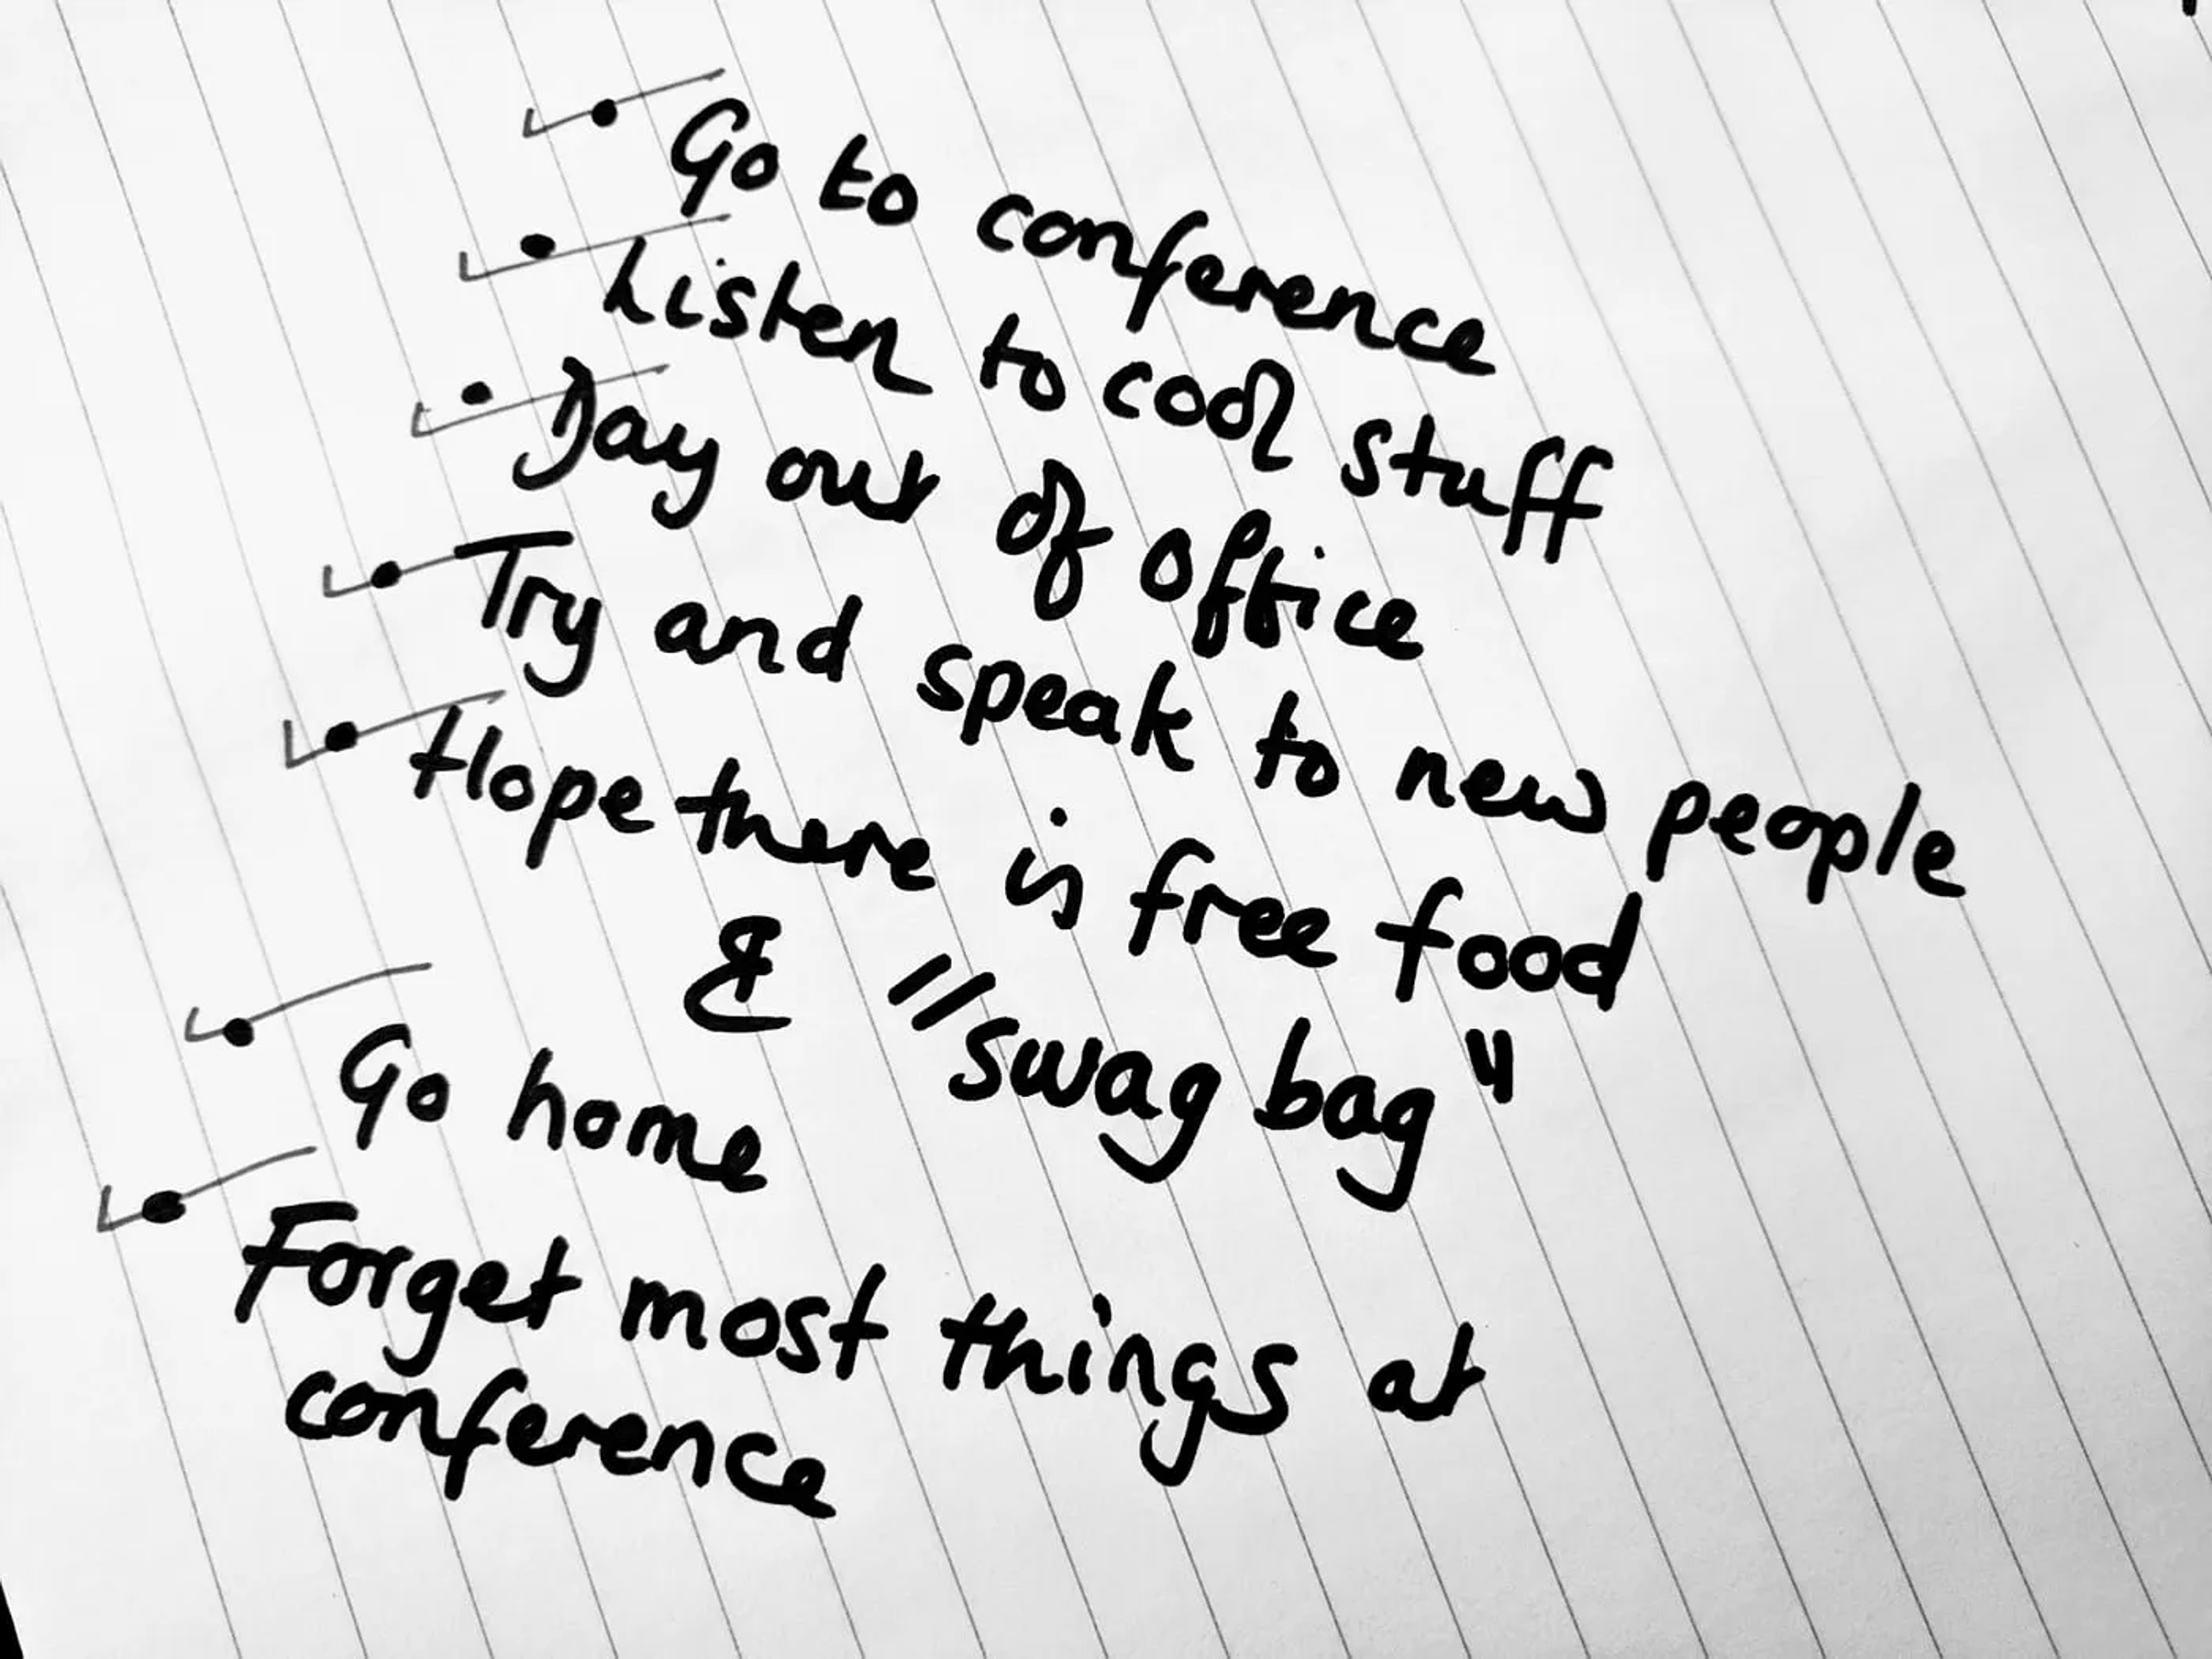 • Go to conference
• Listen to cool stuff
• Day out of office
• Try and speak to new people
• Hope there is free food
& "swag bag"
• Go home
• Forget most things at
conference